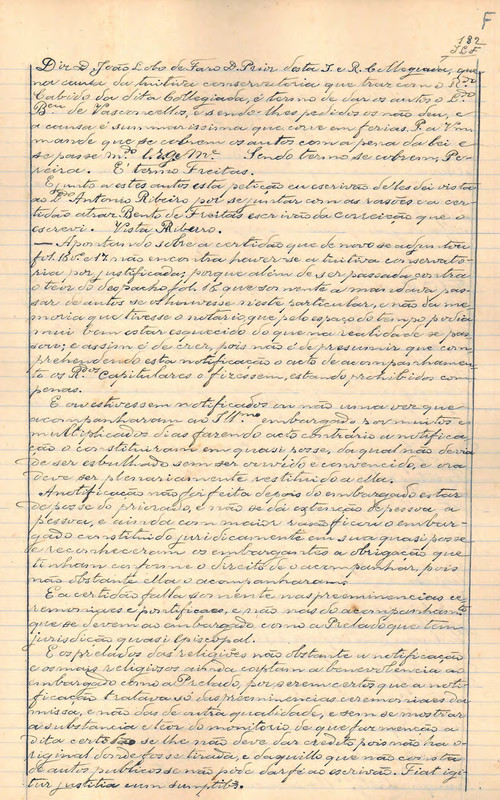 F
132
Diz D. João Lobo de Faro D. Prior desta I. e R. Collegiada, que
na causa da tuitiva conservatoria que traz com o R.do
Cabido da dita Collegiada, é termo de dar os autos o L.do
B.eu de Vasconcellos, e sendo-lhes pedidos os não deu, e
a causa é summarissima que corre em ferias. P. a V.m
mande que se cobrem os autos com a pena da lei e
se passe m.do E. R. M. Sendo termo se cobrem Pe-
reira. É termo Freitas.
E junto a estes autos esta petição eu escrivão delles dei vista
ao L.do Antonio Ribeiro por se juntar com as rasões e a cer-
tidão atraz Bento de Freitas escrivão da correição que o
escrevi. Vista Ribeiro.
— Apontando sobre a certidão que de novo se adjuntou
fol. 16 v. e 17 não encontra haver-se a tuitiva conservato-
ria por justificada; porque além de ser passada contra
o teor do despacho fol. 15 que somente a mandava pas-
sar de autos se os houvesse n'este particular, e não da me-
moria que tivesse o notario, que pelo espaço do tempo podia
mui bem estar esquecido do que na realidade se pas-
sou; e assim é de crer, pois não é de presumir que com-
prehendendo esta notificação o acto de acompanhamen-
to os R.dos Capitulares o fizessem, estando prohibidos com
penas.
E ou estivessem notificados ou não uma vez que
acompanharam ao Ill.mo embargado por muitos e
multiplicados dias fazendo acto contrario a notifica-
ção o constituiram em quasi posse, da qual não devia
de ser esbulhado sem ser ouvido e convencido, e ora
deve ser plenariamente restituido a ella.
A notificação não foi feita depois do embargado estar
de posse do priorado, e não se dá extenção de pessoa a
pessoa, e ainda com maior rasão ficou o embar-
gado constituido juridicamente em sua quasi posse
se reconheceram os embargantes a obrigação que
tinham conforme o direito de o acompanhar, pois
não obstante ella o acompanharam.
E a certidão falla somente nas preeminencias ce-
remoniaes e pontificaes, e não nas do acompanham.to
que se devem ao embargado como a Prelado que tem
jurisdicção quasi Episcopal.
E os prelados das religiões não obstante a notificação
e os mais religiosos ainda captam a benevolencia ao
embargado como a Prelado, por serem certos que a noti-
ficação tratava só das preeminencias ceremoniaes da
missa, e não das de outra qualidade, e sem se mostrar
a substancia e teor do monitorio de que faz menção a
dita certidão se lhe não deve dar credito, pois não ha o-
riginal donde fosse tirada, e daquillo que não consta
de autos publicos se não póde dar fé ao escrivão. Fiat igi-
tur justitia cum sumptibus.